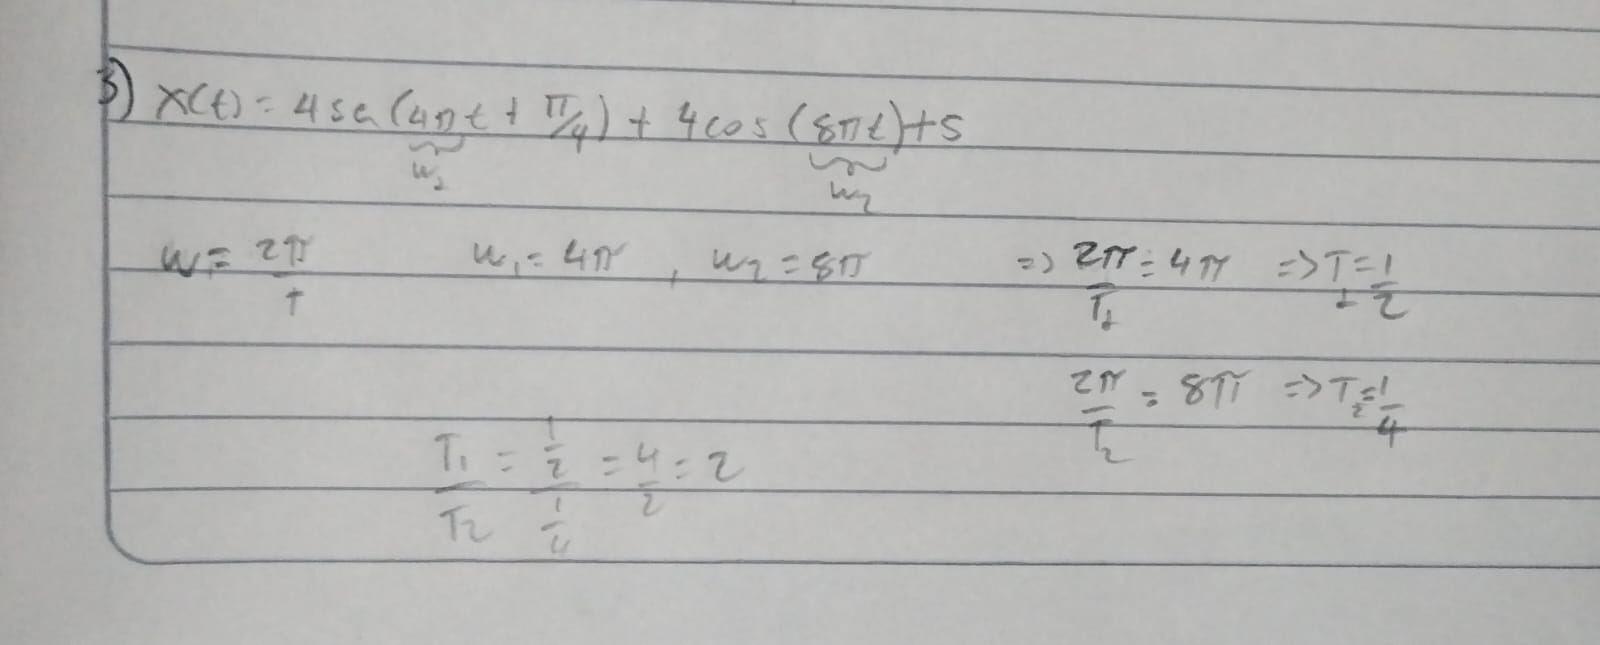 3) x(t) = 4 sen (4πt + π/4) + 4 cos (8πt) + 5
w₁ w₂
w = 2π/T w₁ = 4π , w₂ = 8π => 2π/T₁ = 4π => T₁ = 1/2
2π/T₂ = 8π => T₂ = 1/4
T₁/T₂ = (1/2)/(1/4) = 4/2 = 2